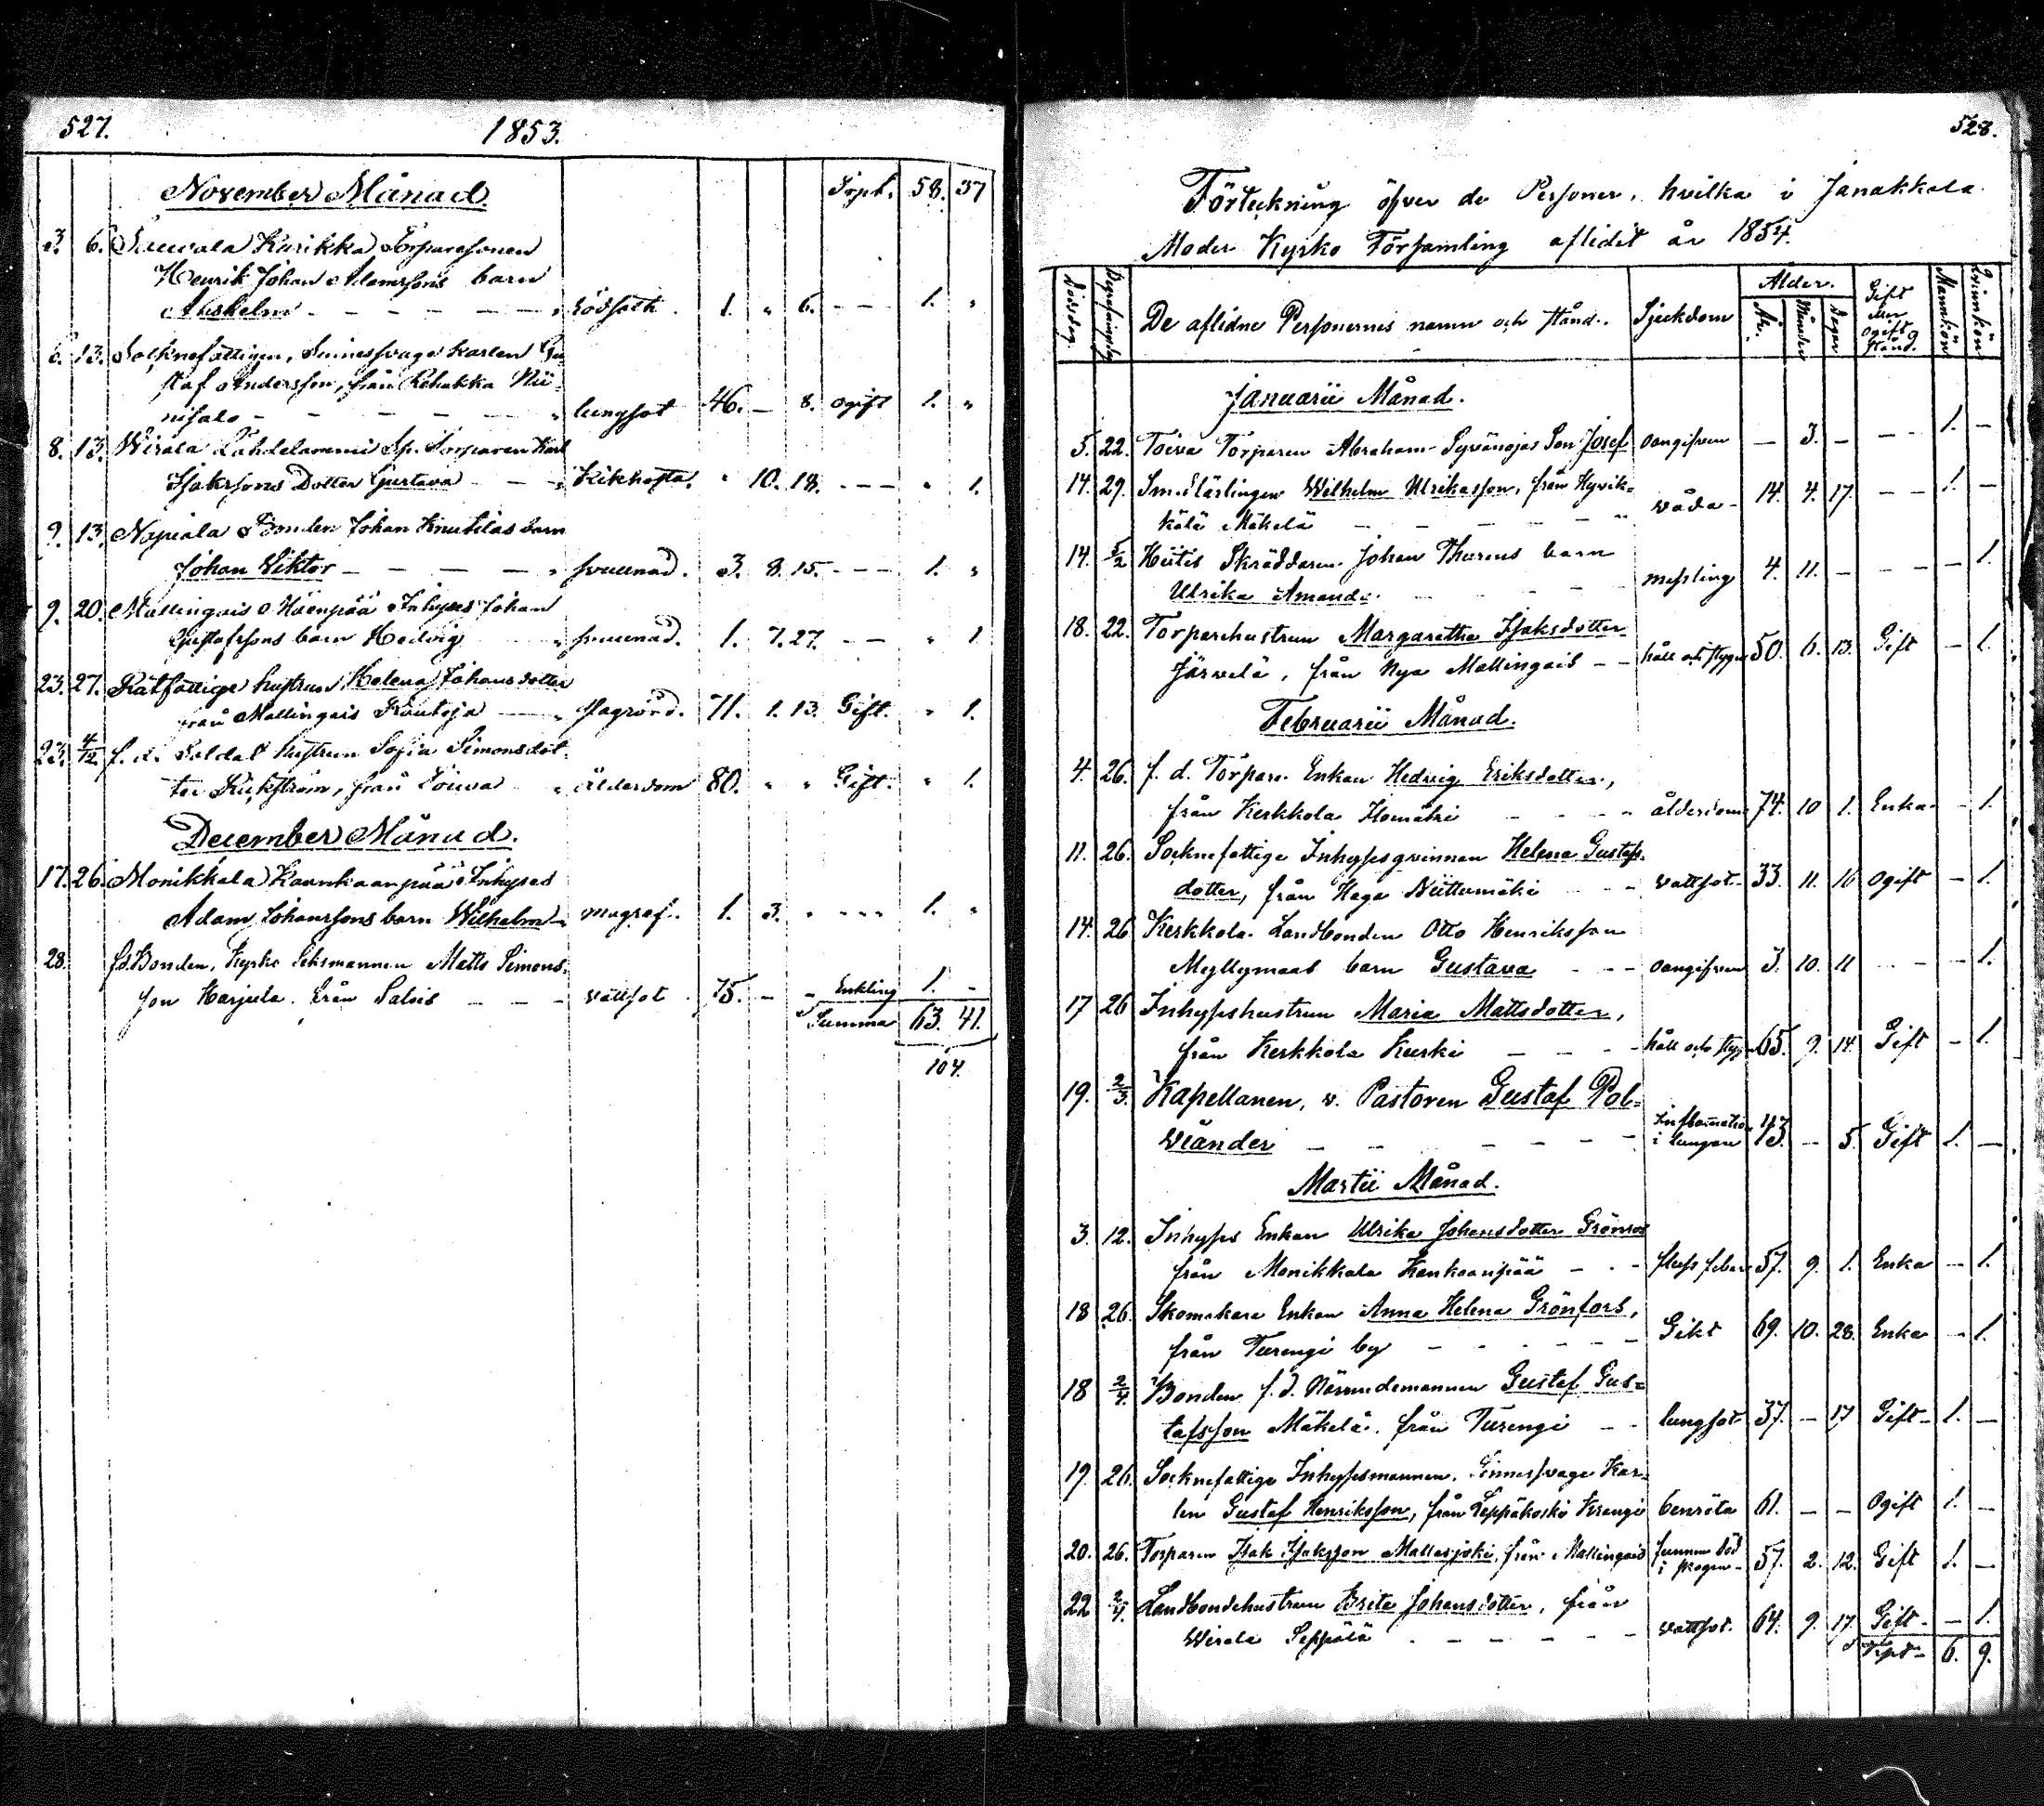 527. 1853.
November Månad Trpt. 58. 37
3. 6. Sauvala Karikka Torparesonen
Henrik Johan Adamssons barn
Anshelm - - - - - rödsoth 1. " 6. - - 1. "
6. 13. Socknefattigen, Sinnessvage karlen Gu-
staf Andersson, från Rehakka Nii-
nisalo - - - - - lungsot 46. - 8. ogift 1. "
8. 13. Wirala Lahdelammi Sp. Torparen Karl
Isakssons Dotter Gustava - - Kikhosta. " 10. 18. - - - " 1.
9. 13. Napiala Bonden Johan Knutilas barn
Johan Viktor - - - - - svullnad. 3. 8. 15. - - - 1. "
9. 20. Mallingais Inhyses Johan
Gustafssons barn Hedvig svullnad. 1. 7. 27. - - " 1
23. 27. Rotfattige hustrun Helena Johansdotter
från Mallingais slagrörd. 71. 1. 13. Gift. " 1.
23. 4/12 f. d. Soldat hustrun Sofia Simonsdot-
ter från ålderdom 80. " " Gift. " 1.
December Månad.
17. 26. Monikkala Kaunkaanpää Inhyses
Adam Johanssons barn Wilhelm - magref. 1. 3. " - - - 1. "
28. f.d. Bonden, Kyrko Sexmannen Matts Simons-
son Harjula. från Salois - - - vattsot 75. - - Enkling 1. -
Summa 63. 41.
104.
528.
Förteckning öfver de Personer, hvilka i Janakkala
Moder Kyrko Församling aflidit år 1854.
Dödsdag. Begrafningsdag De aflidne Personernes namn och stånd. Sjuckdom Ålder. År. Månader Dagar Gift eller Ogift Stånd. Mannkön Qvinnkön
Januarii Månad.
5. 22. Toiva Torparen Abraham Syvänojas Son Josef oangifven - 3. - - - 1. -
14. 29. Smedlärlingen Wilhelm Ulriksson, från Hyvik-
kälä Mäkelä - - - - - våda - 14. 4. 17. - - 1. -
14. 5/2 Hiitis Skräddaren Johan Thurens barn
Ulrika Amanda. - - - messling 4. 11. - - - - 1.
18. 22. Torparehustrun Margaretha Isaksdotter
Järvelä, från Nya Mallingais - - håll och styng 50. 6. 13. Gift - 1.
Februarii Månad.
4. 26. f. d. Torpare Enkan Hedvig Eriksdotter,
från Kerkkola - - - ålderdom 74. 10 1. Enka - 1.
11. 26. Socknefattige Inhysesqvinnan Helena Gustafs-
dotter, från Haga Niittumäki - - - vattsot - 33. 11. 10 ogift - 1.
14. 26 Kerkkola Landbonden Otto Henriksson
Myllymaas barn Gustava - - - oangifven 3. 10. 11 - - - 1.
17 26 Inhyseshustrun Maria Mattsdotter,
från Kerkkola Kurki - - - håll och styng 65. 9. 14. Gift - 1.
19. 2/3. Kapellanen, v. Pastoren Gustaf Pol-
viander - - - - - Inflamation i lungan 43. - 5. Gift 1. -
Martii Månad.
3. 12. Inhyses Enkan Ulrika Johansdotter Grönroos
från Monikkala Kankaanpää - - - fluss feber 57. 9. 1. Enka - 1.
18 26. Skomakare Enkan Anna Helena Grönfors,
från Turengi by - - - - - Gikt 69. 10. 28. Enka - 1.
18 2/4. Bonden f.d. Nämndemannen Gustaf Gus-
tafsson Mäkelä. från Turengi - - lungsot 37. - 17 Gift - 1. -
19. 26. Socknefattige Inhysesmannen. Sinnessvage Kar-
len Gustaf Henriksson, från Leppäkoski benröta 61. - - Ogift 1. -
20. 26. Torparen Isak Isaksson Mallasjoki från Mallingais funnen död i skogen - 57. 2. 12. Gift 1. -
22 2/4. Landbondehustrun Brita Johansdotter, från
Wirala Seppälä - - - - - vattsot. 64. 9. 17. Gift - - 1.
Trpt - 6. 9.